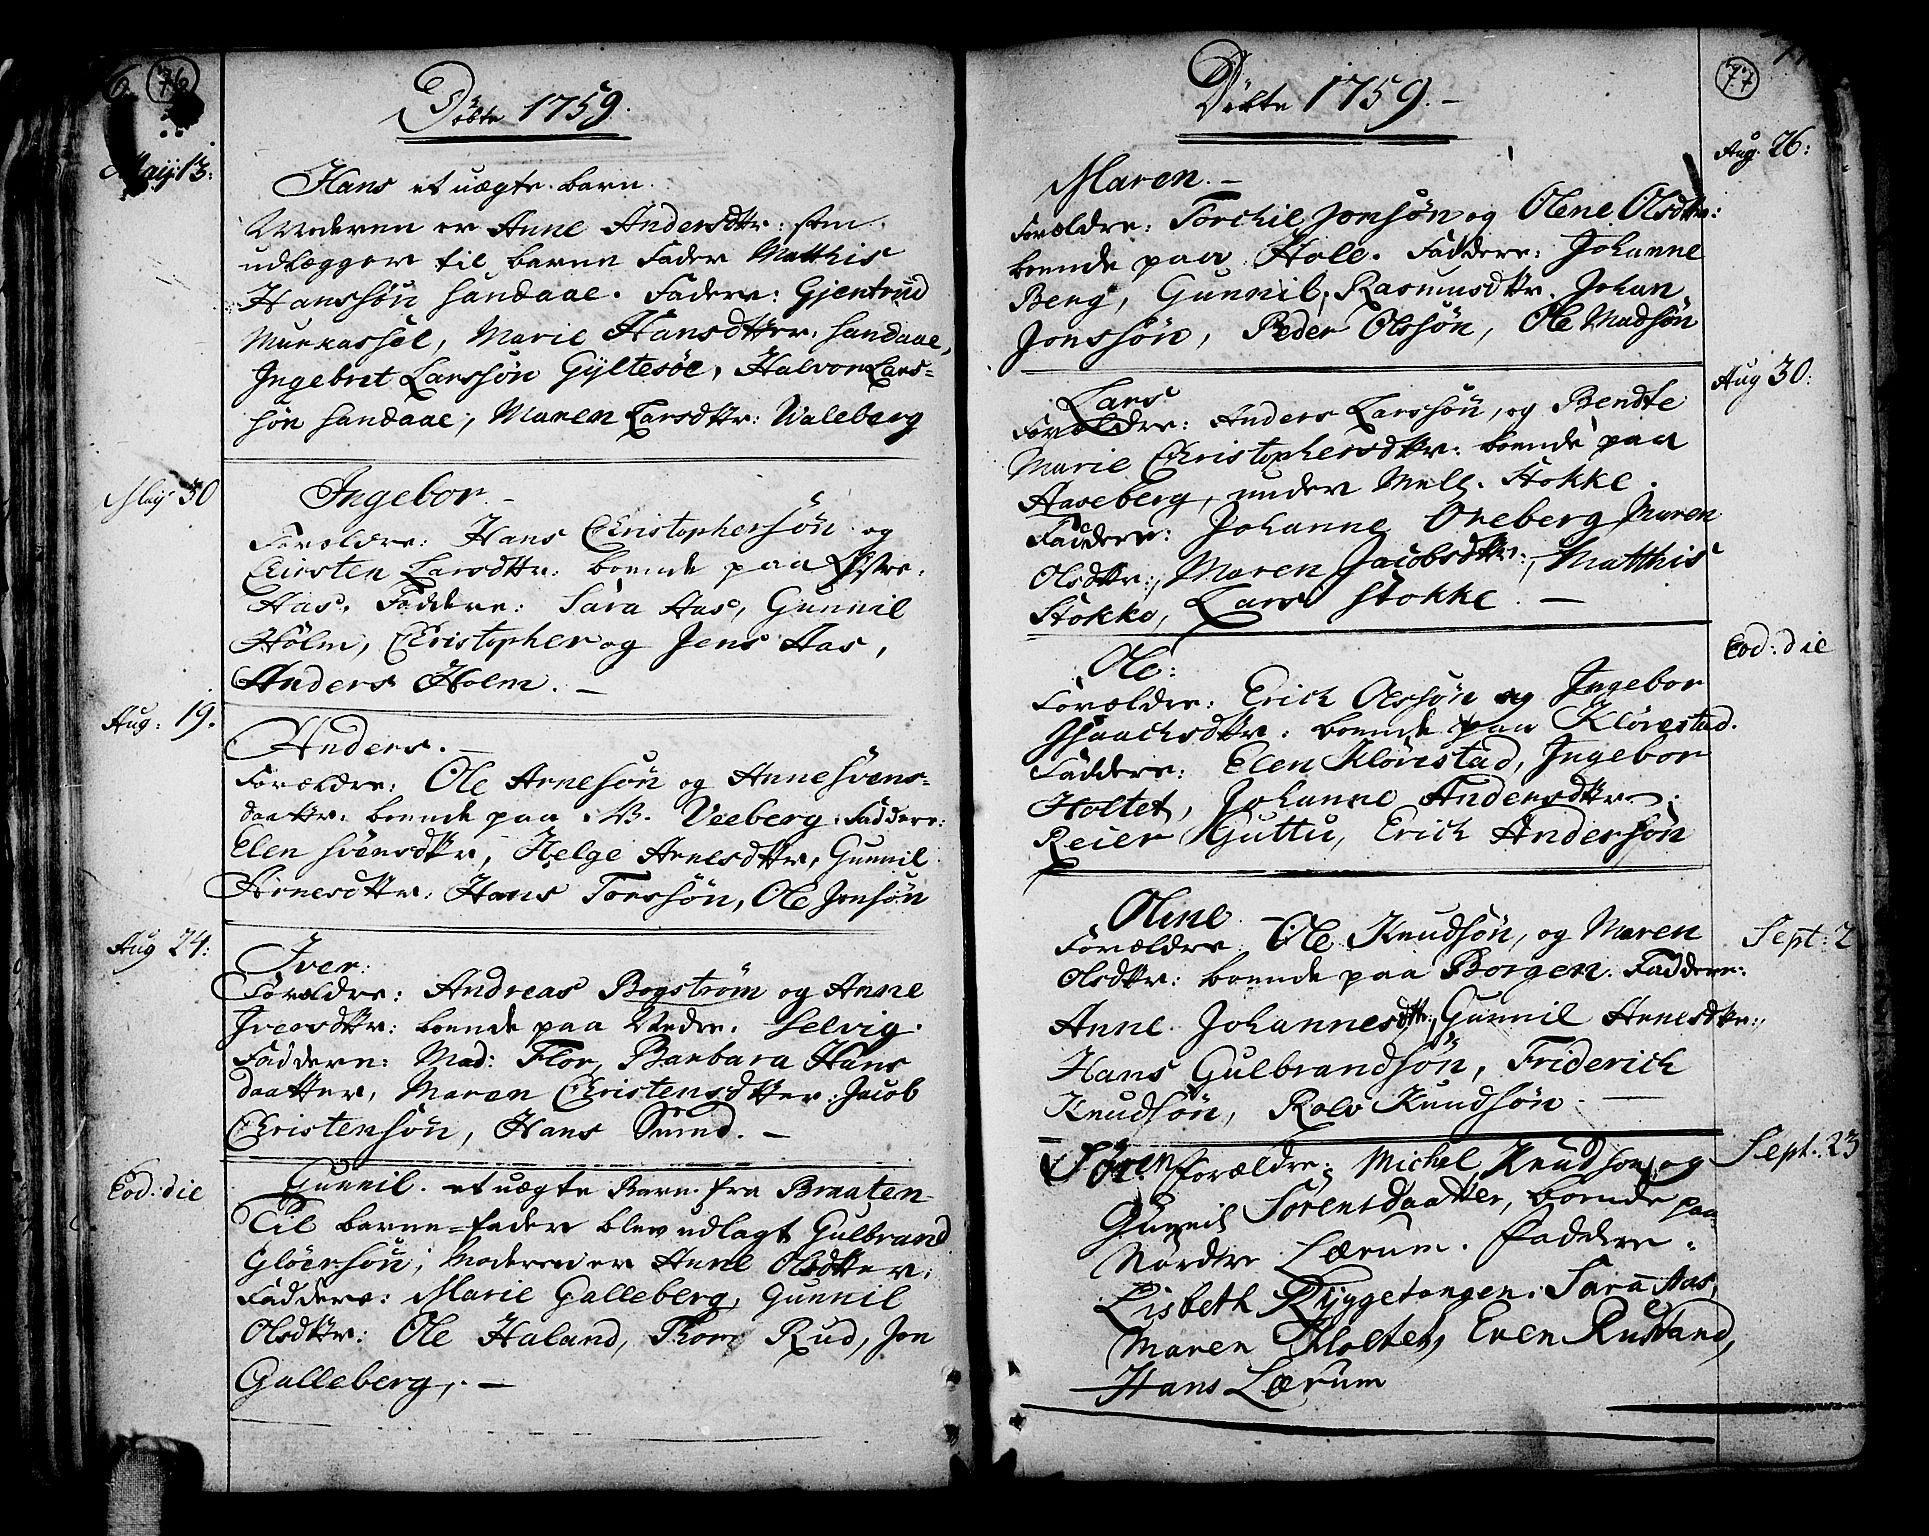 76
Döbte 1759.
Maij 13:
Hans et uægte barn.
Moderen er Anne Andersdttr: som
udlægger til barne Fader Matthis
Hanssøn Sandaae. Fadere: Gjertrud
Marie Hansdtter Sandaae,
Ingebret Larssøn Gyltesøe, Halvor Lars-
søn Sandaae, Maren Larsdttr: Waleberg
Maij 30
Ingebor –
Forældre: Hans Christophersøn og
Kirsten Larsdttr: boende paa Østre
Aas. Faddere: Sara Aas, Gunnil
Holm, Christopher og Jens Aas,
Anders Holm. –
Aug: 19.
Anders. –
Forældre: Ole Arnesøn og Anne Svens-
daattr: boende paa W. Veeberg. Faddere:
Elen Svensdttr, Helge Arnesdttr, Gunnil
Arnesdttr: Hans Torssøn, Ole Jonsøn
Aug 24:
Iver:
Forældre: Andreas Bogstrøm og Anne
Iversdttr: boende paa Nedre Selvig.
Faddere: Mad: Flor, Barbara Hans
daatter, Maren Christensdtter, Jacob
Christensøn, Hans Smed. –
Eod: die
Gunnil. et uægte Barn fra Braaten
Til barne-fader blev udlagt Gulbrand
Gløersøn, Moderen er Anne Olsdtter.
Faddere: Marie Galleberg, Gunnil
Olsdttr: Ole Haland, Thor Rud, Jon
Galleberg, –
77
Döbte 1759. –
Aug. 26:
Maren. –
Forældre: Torchil Jonsøn og Olene Olsdttr:
boende paa Holt. Faddere: Johanne
Berg, Gunnil Rasmusdttr. Johan
Jonssøn, Peder Olssøn, Ole Madsøn
Aug 30:
Lars
Forældre: Anders Larssøn, og Bendte
Marie Christophersdttr: boende paa
Haveberg, under Mell. Stokke.
Faddere: Johanne Oreberg Maren
Olsdttr: Maren Jacobsdttr: Matthis
Stokke, Lars Stokke. –
Eod: die
Ole:
Forældre: Erich Olssøn og Ingebor
Isaachsdttr: boende paa Klørestad.
Faddere: Elen Klørestad, Ingebor
Holtet, Johanne Andersdttr:
Reier Guttu, Erich Andersøn
Sept: 2
Oline. –
Forældre: Ole Knudsøn, og Maren
Olsdttr: boende paa Borgen. Faddere:
Anne Johannesdttr: Gunnil Arnesdttr:,
Hans Gulbrandsøn, Friderich
Knudsøn, Rolv Knudsøn –
Sept: 23
Søren Forældre: Michel Knudson og
Gunnil Sørensdaatter, boende paa
Nordre Lærum. Faddere:
Lisbeth Ryggetangen. Sara Aas,
Maren Holtet, Even Rustand,
Hans Lærum